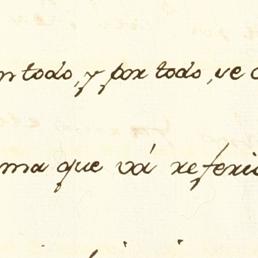 n todo, y por todo, se
ma que vá referi